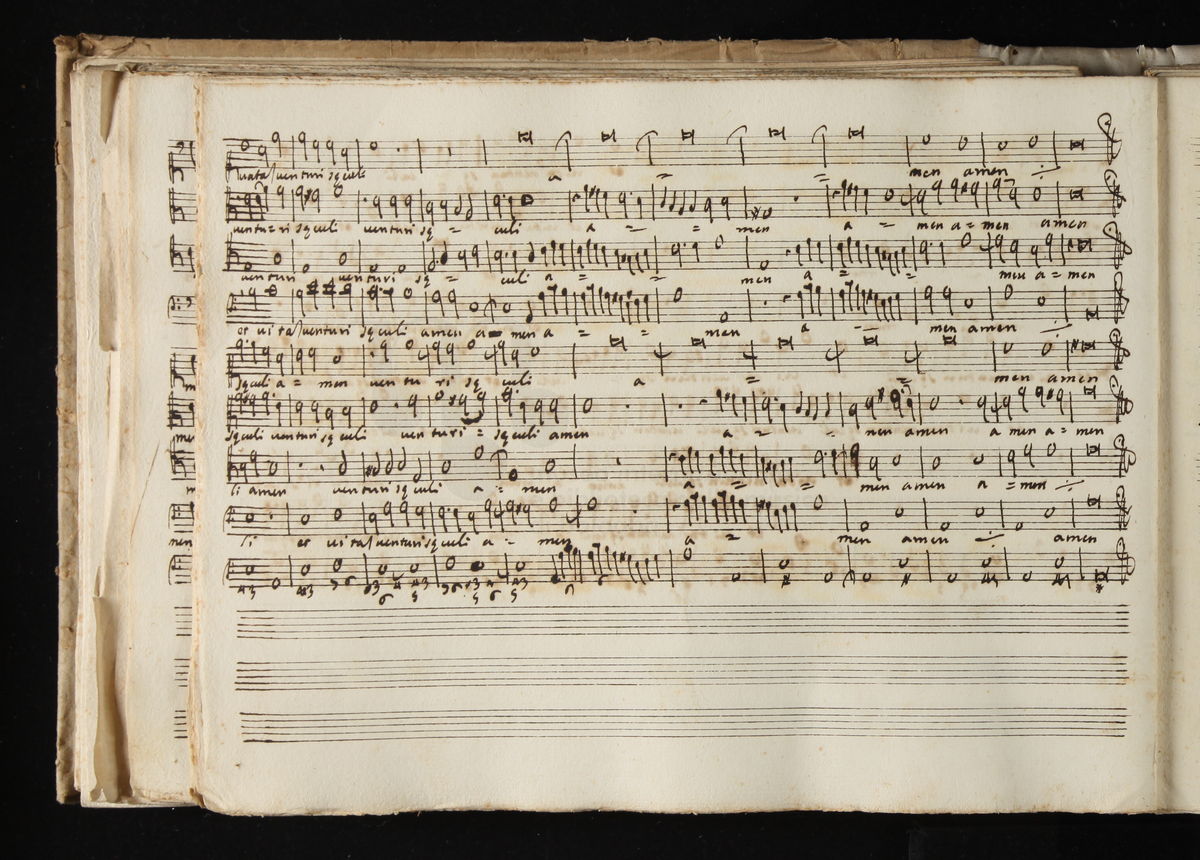 venturi sęculi a = = men amen ÷
ventu=ri sęculi venturi sę = culi a = = men a = men a = men amen
venturi venturi sę = culi a = = men a = = men a = men
et vita venturi sęculi amen a men a = = men a = men amen ÷
sęculi a = men ventu ri sę culi a = = men amen
sęculi venturi sęculi venturi = sęculi amen a = = men amen a men a = men
li amen venturi sęculi a = men a = = men amen a = men ÷
li et vita venturi sęculi a = men a = men amen ÷ amen